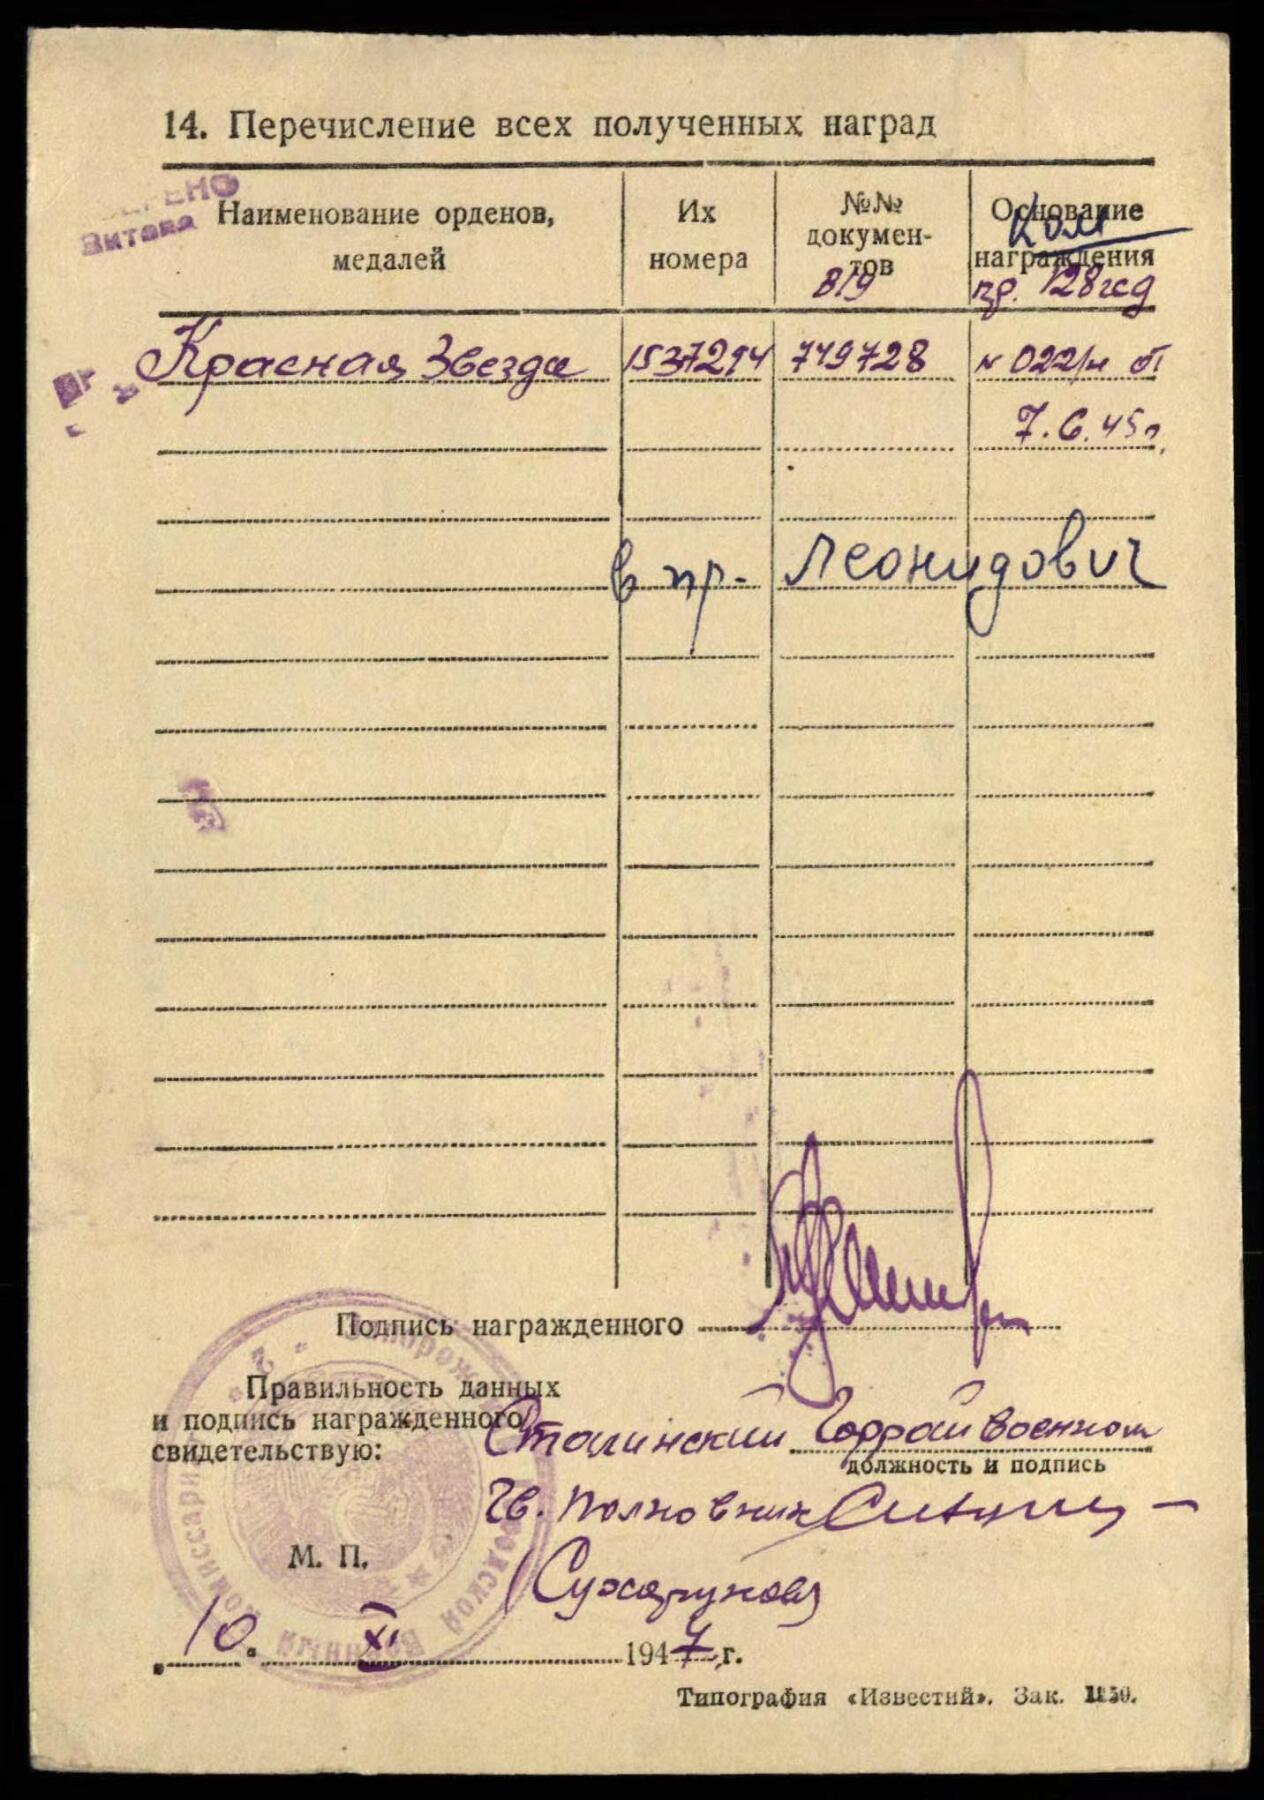 14. Перечисление всех полученных наград
Витова
Наименование орденов,
медалей
Их
номера
№№
докумен-
тов
в/9
Основание
награждения
пр. 128 гсд
Красная Звезда 1537294 749728 № 022/н от
7.6.45г.
в пр- Леонидович
Подпись награжденного
Правильность данных
и подпись награжденного
свидетельствую:
Сталинский Горрайвоенком
должность и подпись
Гв. Полковник
М. П.
10. XI 1947 г.
Типография «Известий». Зак.